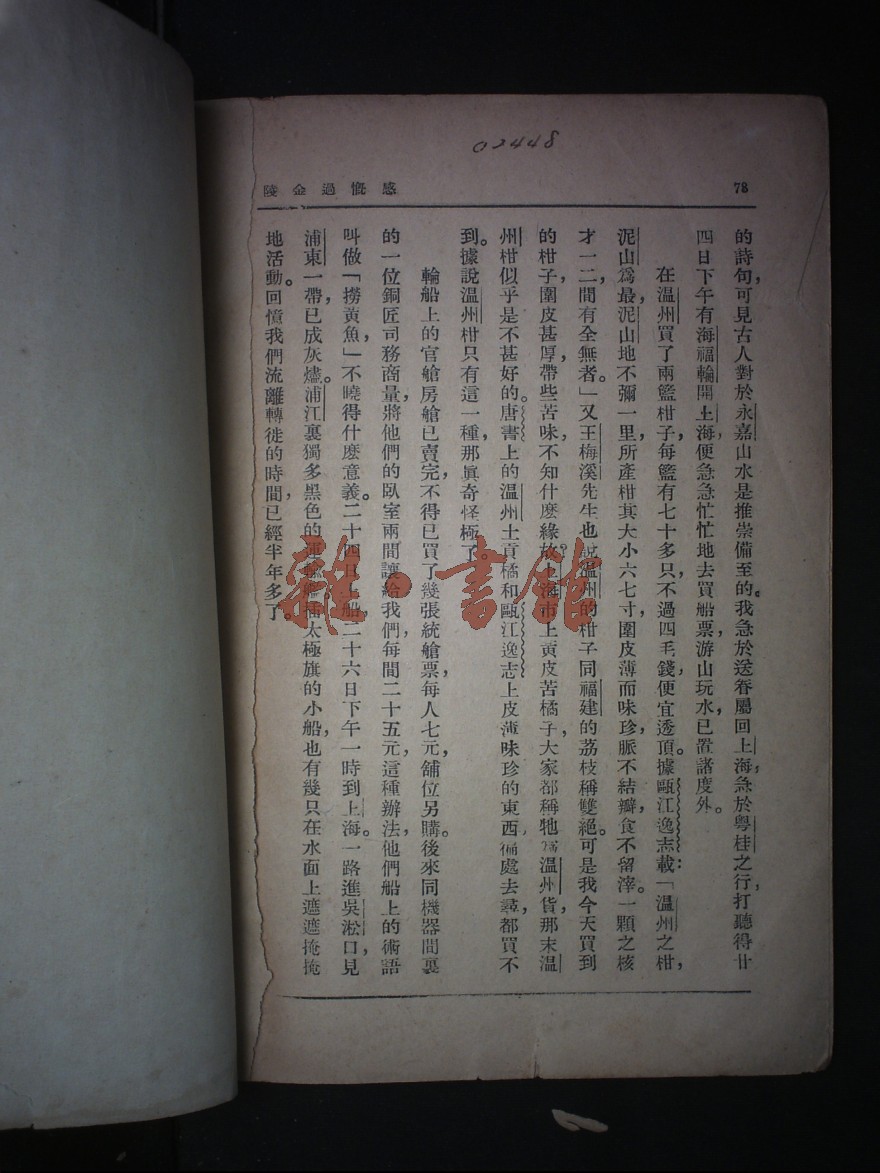 02448
感慨過金陵
78
的詩句，可見古人對於永嘉山水是推崇備至的。我急於送眷屬回上海，急於粵桂之行，打聽得廿
四日下午有海福輪開上海，便急急忙忙地去買船票，游山玩水，已置諸度外。
在温州買了兩籃柑子，每籃有七十多只，不過四毛錢，便宜透頂。據甌江逸志載：「温州之柑，
泥山爲最，泥山地不彌一里，所產柑其大小六七寸，圍皮薄而味珍，脈不結瓣，食不留滓。一顆之核
才一二，間有全無者。」又王梅溪先生也說温州的柑子同福建的荔枝稱雙絕。可是我今天買到
的柑子，圍皮甚厚，帶些苦味，不知什麼緣故？上海市上黃皮苦橘子，大家都稱牠爲温州貨，那末温
州柑似乎是不甚好的。唐書上的温州土貢橘和甌江逸志上皮薄味珍的東西，徧處去尋，都買不
到。據說温州柑只有這一種，那眞奇怪極了。
輪船上的官艙房艙已賣完，不得已買了幾張統艙票，每人七元，舖位另購。後來同機器間裏
的一位銅匠司務商量，將他們的臥室兩間讓給我們，每間二十五元，這種辦法，他們船上的術語
叫做「撈黃魚」，不曉得什麽意義。二十四日上船，二十六日下午一時到上海。一路進吳淞口，見
浦東一帶，已成灰燼。浦江裏獨多黑色的運輸艦，插太極旗的小船，也有幾只在水面上遮遮掩掩
地活動。回憶我們流離轉徙的時間，已經半年多了。
雜·書館